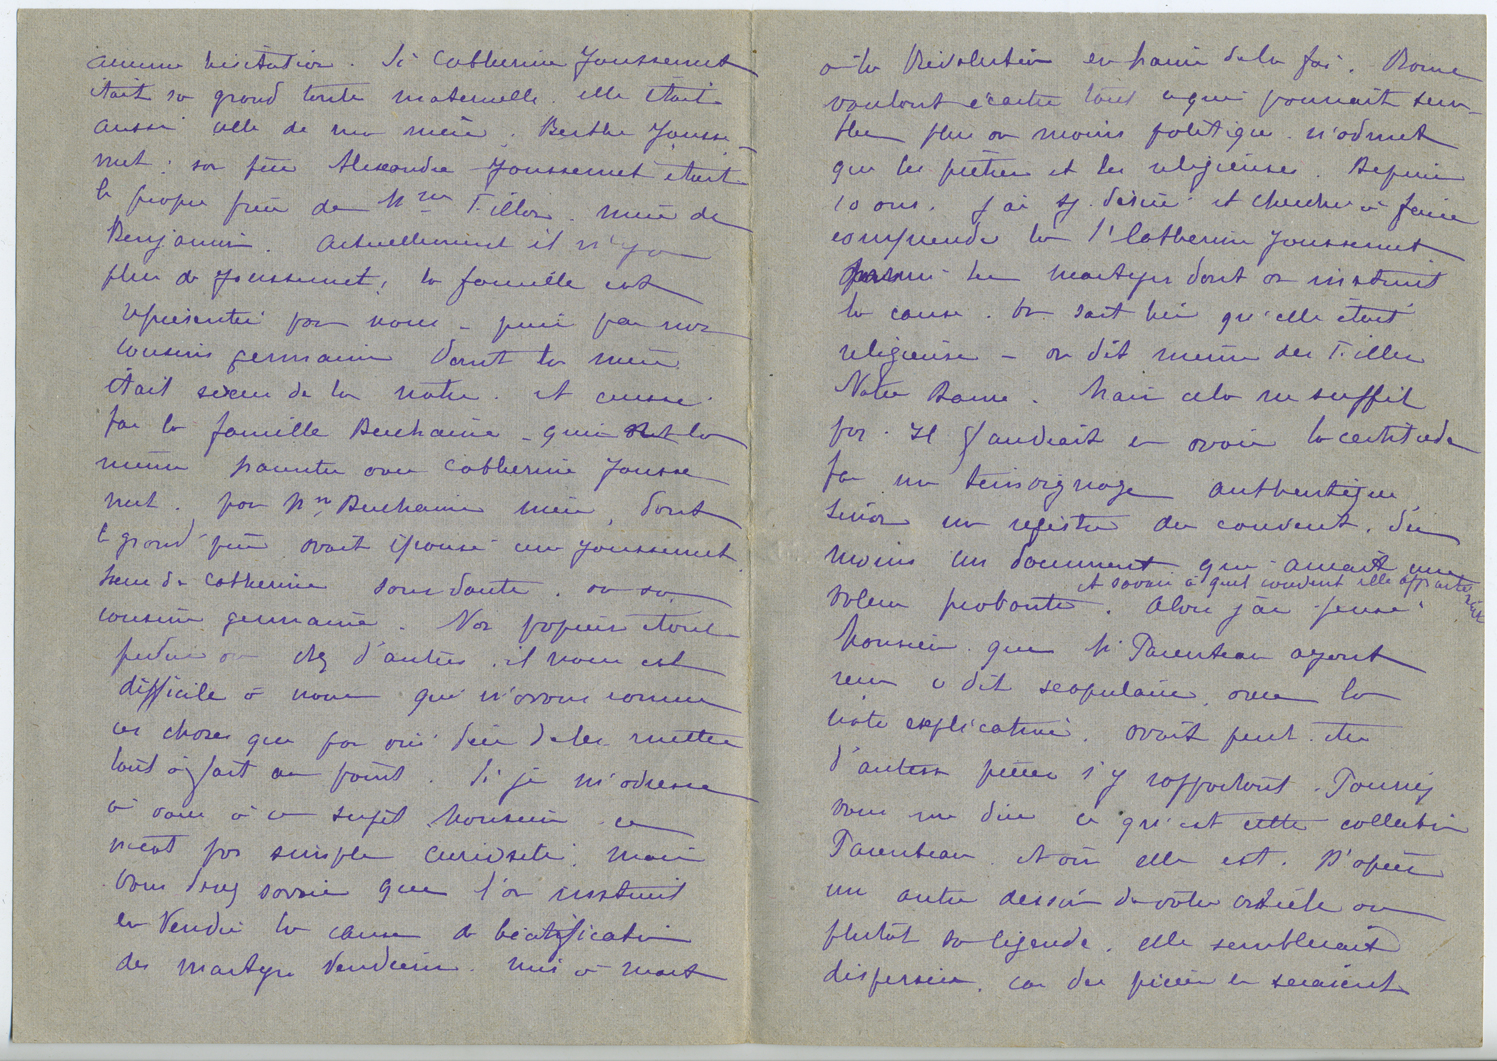 aucune hésitation. Si Catherine Joussemet
était sa grand tante maternelle. elle était
aussi celle de ma mère. Berthe Jousse-
met : son père Alexandre Joussemet était
le propre frère de Mme Fillon. mère de
Benjamin. Actuellement il n'y a
plus de Joussemet, la famille est
représentée par nous - puis par nos
cousins germains dont la mère
était soeur de la nôtre. et aussi
par la famille Beuchaine - qui
même parenté avec Catherine Jousse
met. par Mme Beuchaine mère, dont
le grand'père avait épousé une Joussemet
soeur de Catherine sans doute. ou sa
cousine germaine. Nos papiers étant
perdus ou chez d'autres. il nous est
difficile à nous qui n'avons connu
ces choses que par ouï dire de les mettre
tout à fait au point. Si je m'adresse
à vous à ce sujet Monsieur ce
n'est pas simple curiosité. mais
vous devez savoir que l'on instruit
en Vendée la cause de béatification
des martyrs Vendéens. mis à mort
à la Révolution en haine de la foi. Rome
voulant écarter tout ce qui pourrait sem-
bler plus ou moins politique. n'admet
que les prêtres et les religieuses. Depuis
10 ans. j'ai désiré et cherché à faire
comprendre la Catherine Joussemet
parmi les martyrs dont on instruit
la cause. On sait bien qu'elle était
religieuse - on dit même des Filles
Notre Dame. Mais cela ne suffit
pas. Il faudrait en avoir la certitude
par un témoignage authentique
sinon un registre du couvent. du
moins un document qui aurait une
et savoir à quel couvent elle appartenait
valeur probante. Alors j'ai pensé
Monsieur que M. Parenteau ayant
remis ce dit scapulaire avec la
note explicative. avait peut-être
d'autres pièces s'y rapportant. Pourriez
vous me dire ce qu'est cette collection
Parenteau. et où elle est. D'après
un autre dessin de votre article ou
plutôt sa légende. elle semblerait
dispersée. car des pièces en seraient